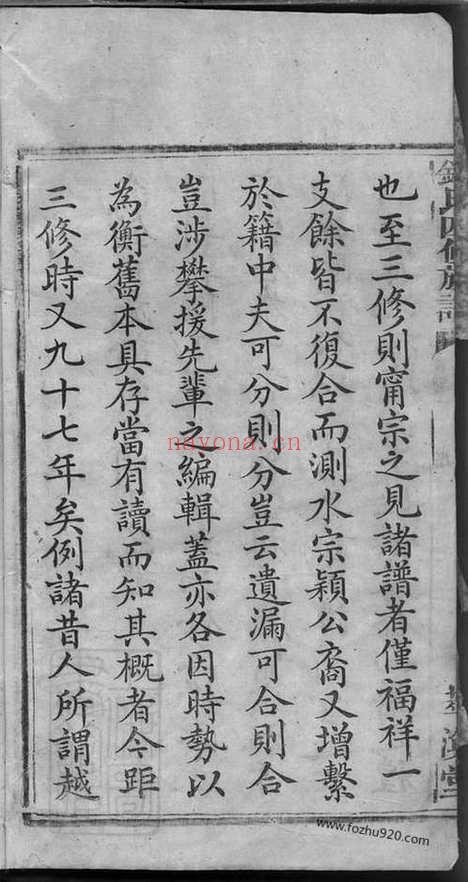 也至三修則甯宗之見諸譜者僅福祥一
支餘皆不復合而測水宗穎公裔又增繫
於籍中夫可分則分豈云遺漏可合則合
豈涉攀援先輩之編輯蓋亦各因時勢以
為衡舊本具存當有讀而知其概者今距
三修時又九十七年矣例諸昔人所謂越
nayona.cn
www.fozhu920.com